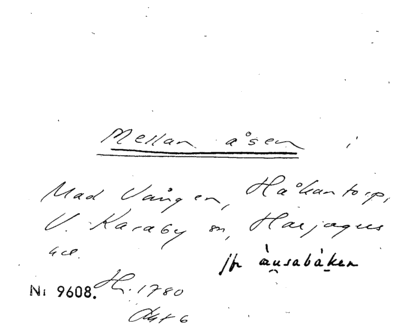 Mellan åsen
Mad Vången, Håkantorp,
V. Karaby sn, Harjagers
hd.
jfr àu̯sabàken
Ni 9608. H. 1780